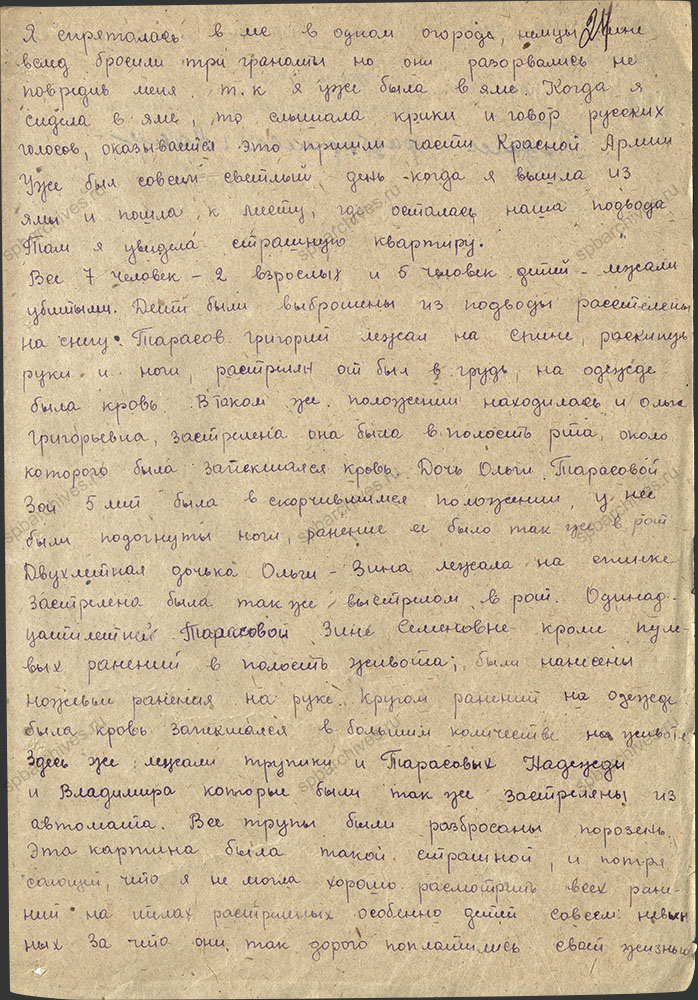 24
Я спряталась в ме в одном огороде, немцы мне
вслед бросили три гранаты но они разорвались не
повредив меня, т.к я уже была в яме. Когда я
сидела в яме, то слышала крики и говор русских
голосов, оказывается это пришли части Красной Армии
Уже был совсем светлый день - когда я вышла из
ямы и пошла к месту, где осталась наша подвода
Там я увидела страшную квартиру.
Все 7 человек - 2 взрослых и 5 человек детей - лежали
убитыми. Дети были выброшены из подводы расстелены
на снегу. Тарасов Григорий лежал на спине, раскинув
руки и ноги, растрелян от был в грудь, на одежде
была кровь. В таком же положении находилась и Ольга
Григорьевна, застрелена она была в полость рта, около
которого была запекшаяся кровь. Дочь Ольги Тарасовой
Зоя 5 лет была в скорчившимся положении, у нее
были подогнуты ноги, ранение ее было так же в рот
Двухлетная дочька Ольги - Зина лежала на спинке
Застрелена была так же выстрелом в рот. Одинад-
цатилетней Тарасовой Зине Семеновне кроме пуле-
вых ранений в полость живота, были нанесены
ножевые ранения на руке. Кругом ранений на одежде
была кровь запекшаяся в большим количестве на животе
Здесь же лежали трупики и Тарасовых Надежды
и Владимира которые были так же застреляны из
автомата. Все трупы были разбросаны порозень.
Эта картина была такой страшной, и потря
сающей, что я не могла хорошо расмотреть всех ране-
ний на телах растреляных особенно детей совсем невин
ных За что они так дорого поплатились своей жизнью
spbarchives.ru
spbarchives.ru
spbarchives.ru
spbarchives.ru
spbarchives.ru
spbarchives.ru
spbarchives.ru
spbarchives.ru
spbarchives.ru